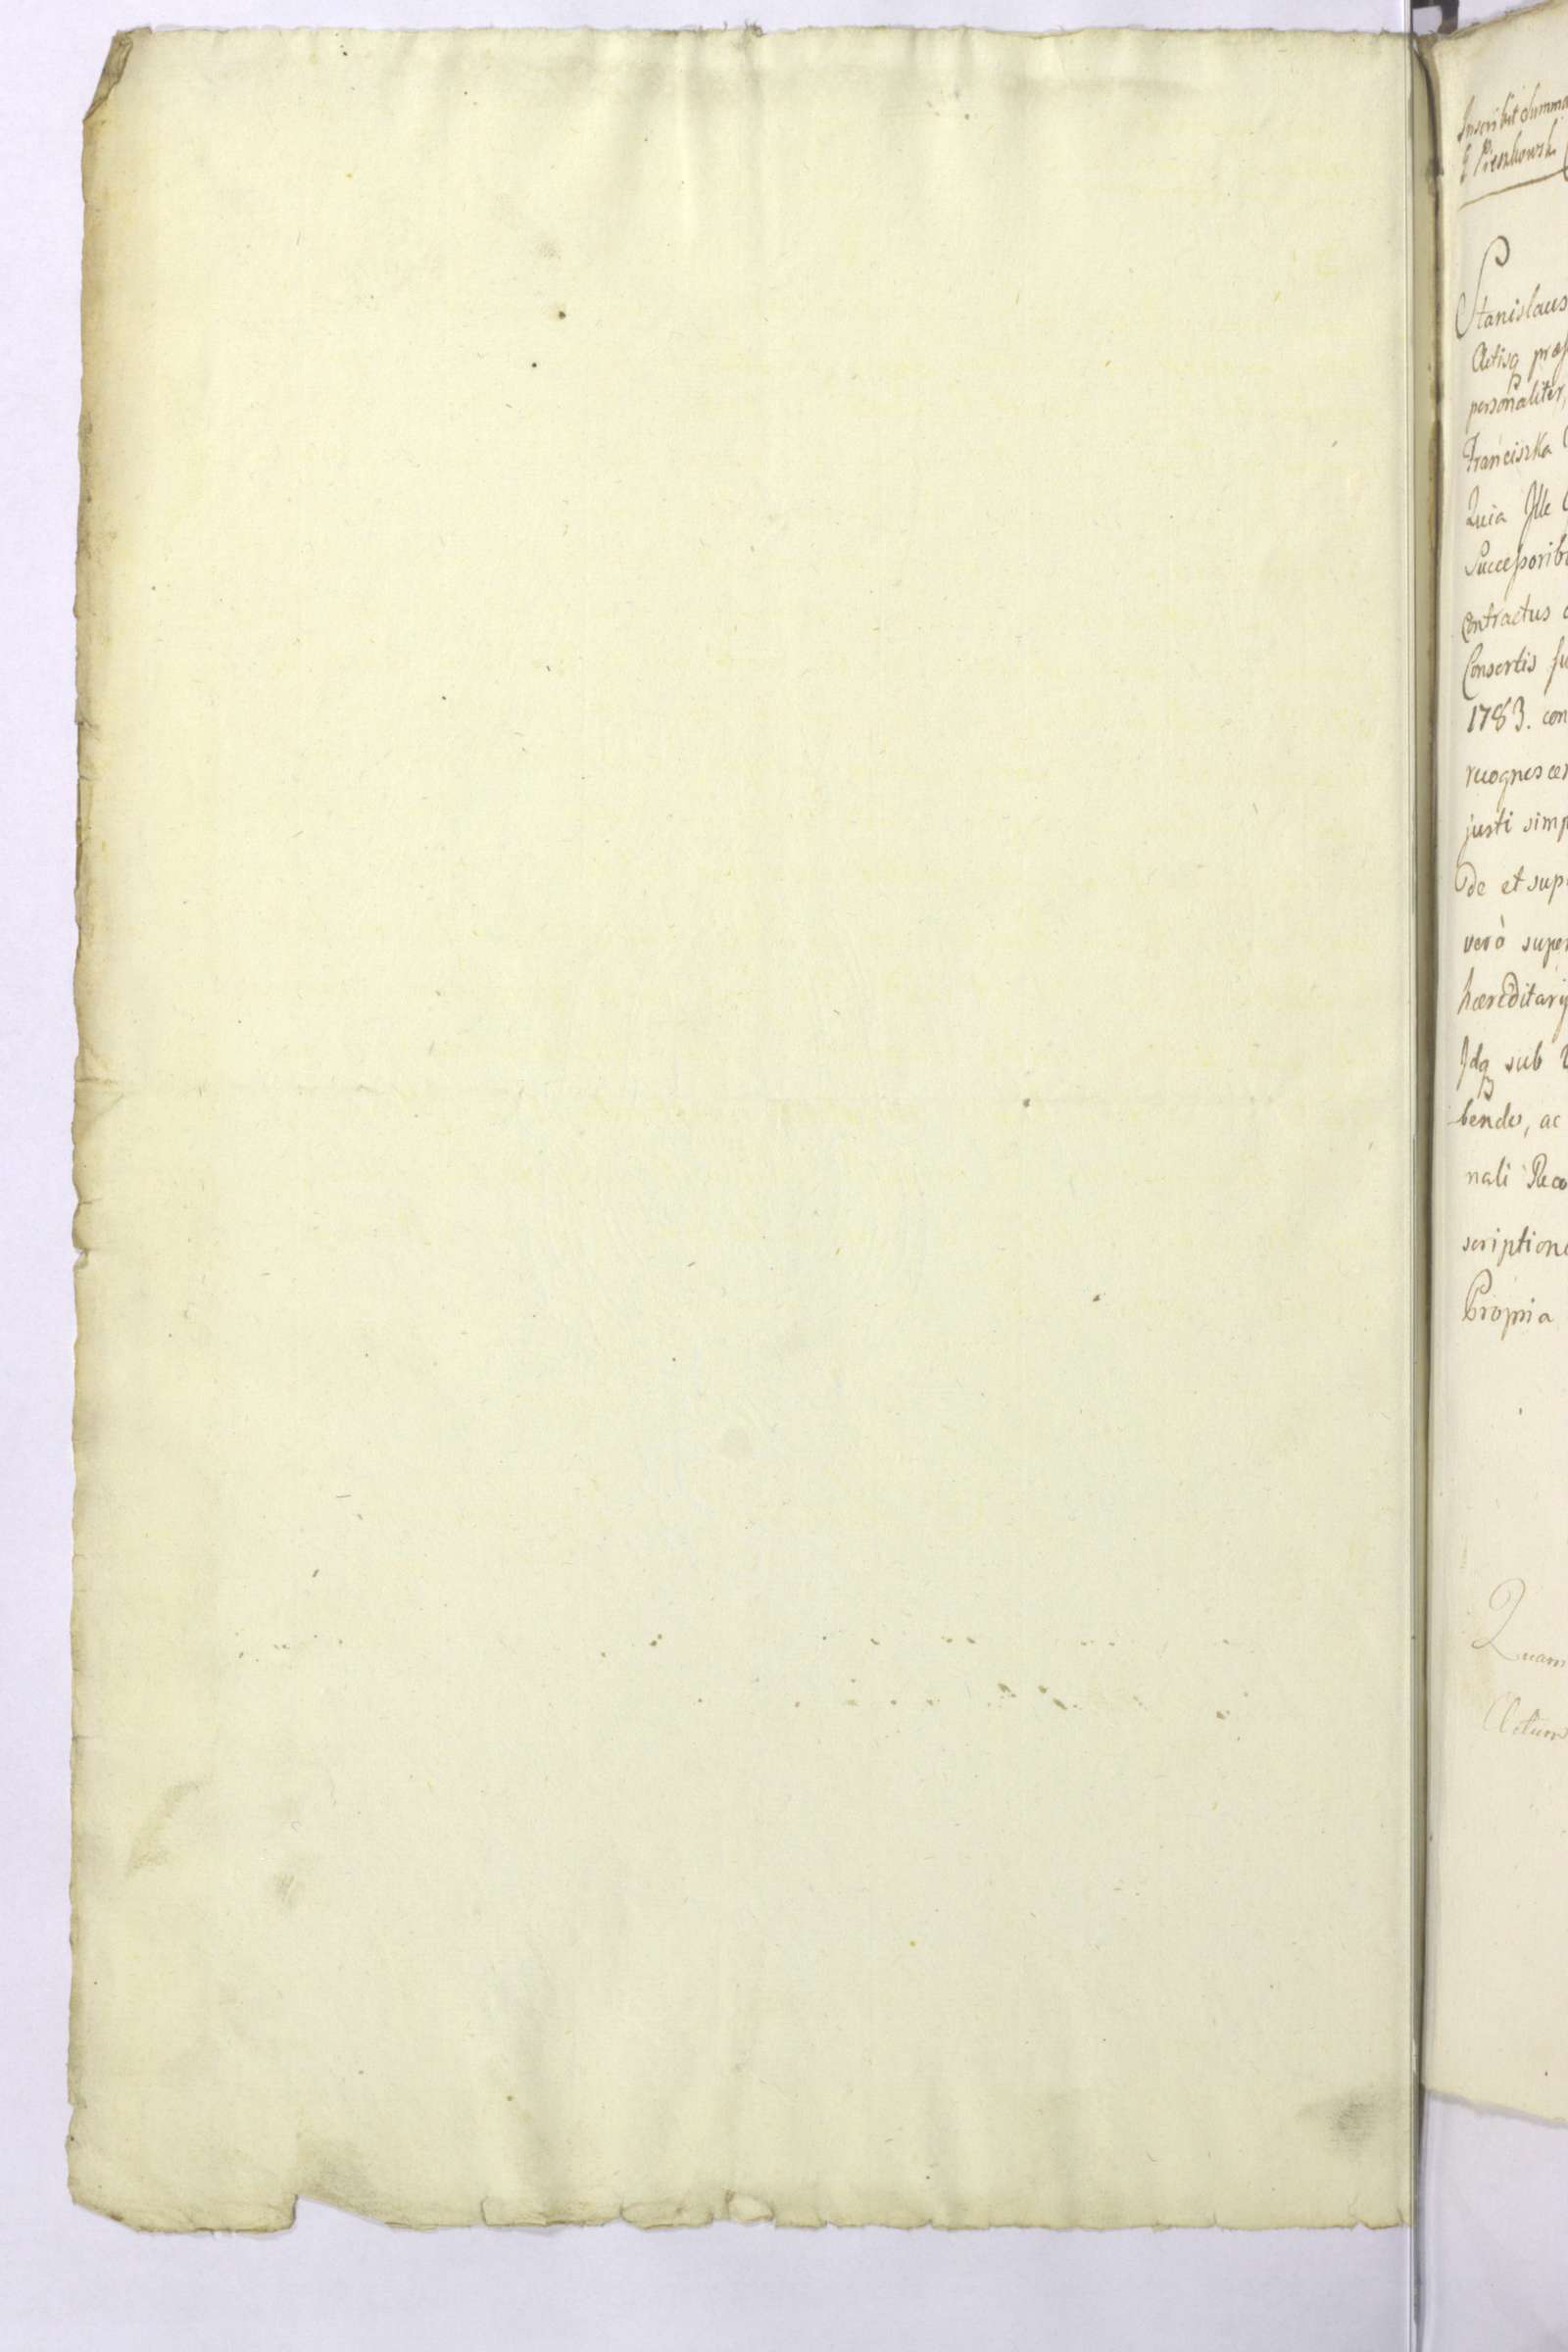 Inscribit Summa
Stanislaus
Actisq præs
personaliter,
Franciszka
Quia Ille
Successorib
Contractus
Consortis su
1783. con
recognoscen
justi simp
de et sup
verò super
hæreditarÿ
Idq sub
bendo, ac
nali Reco
scriptione
Propria
Quam
Actum